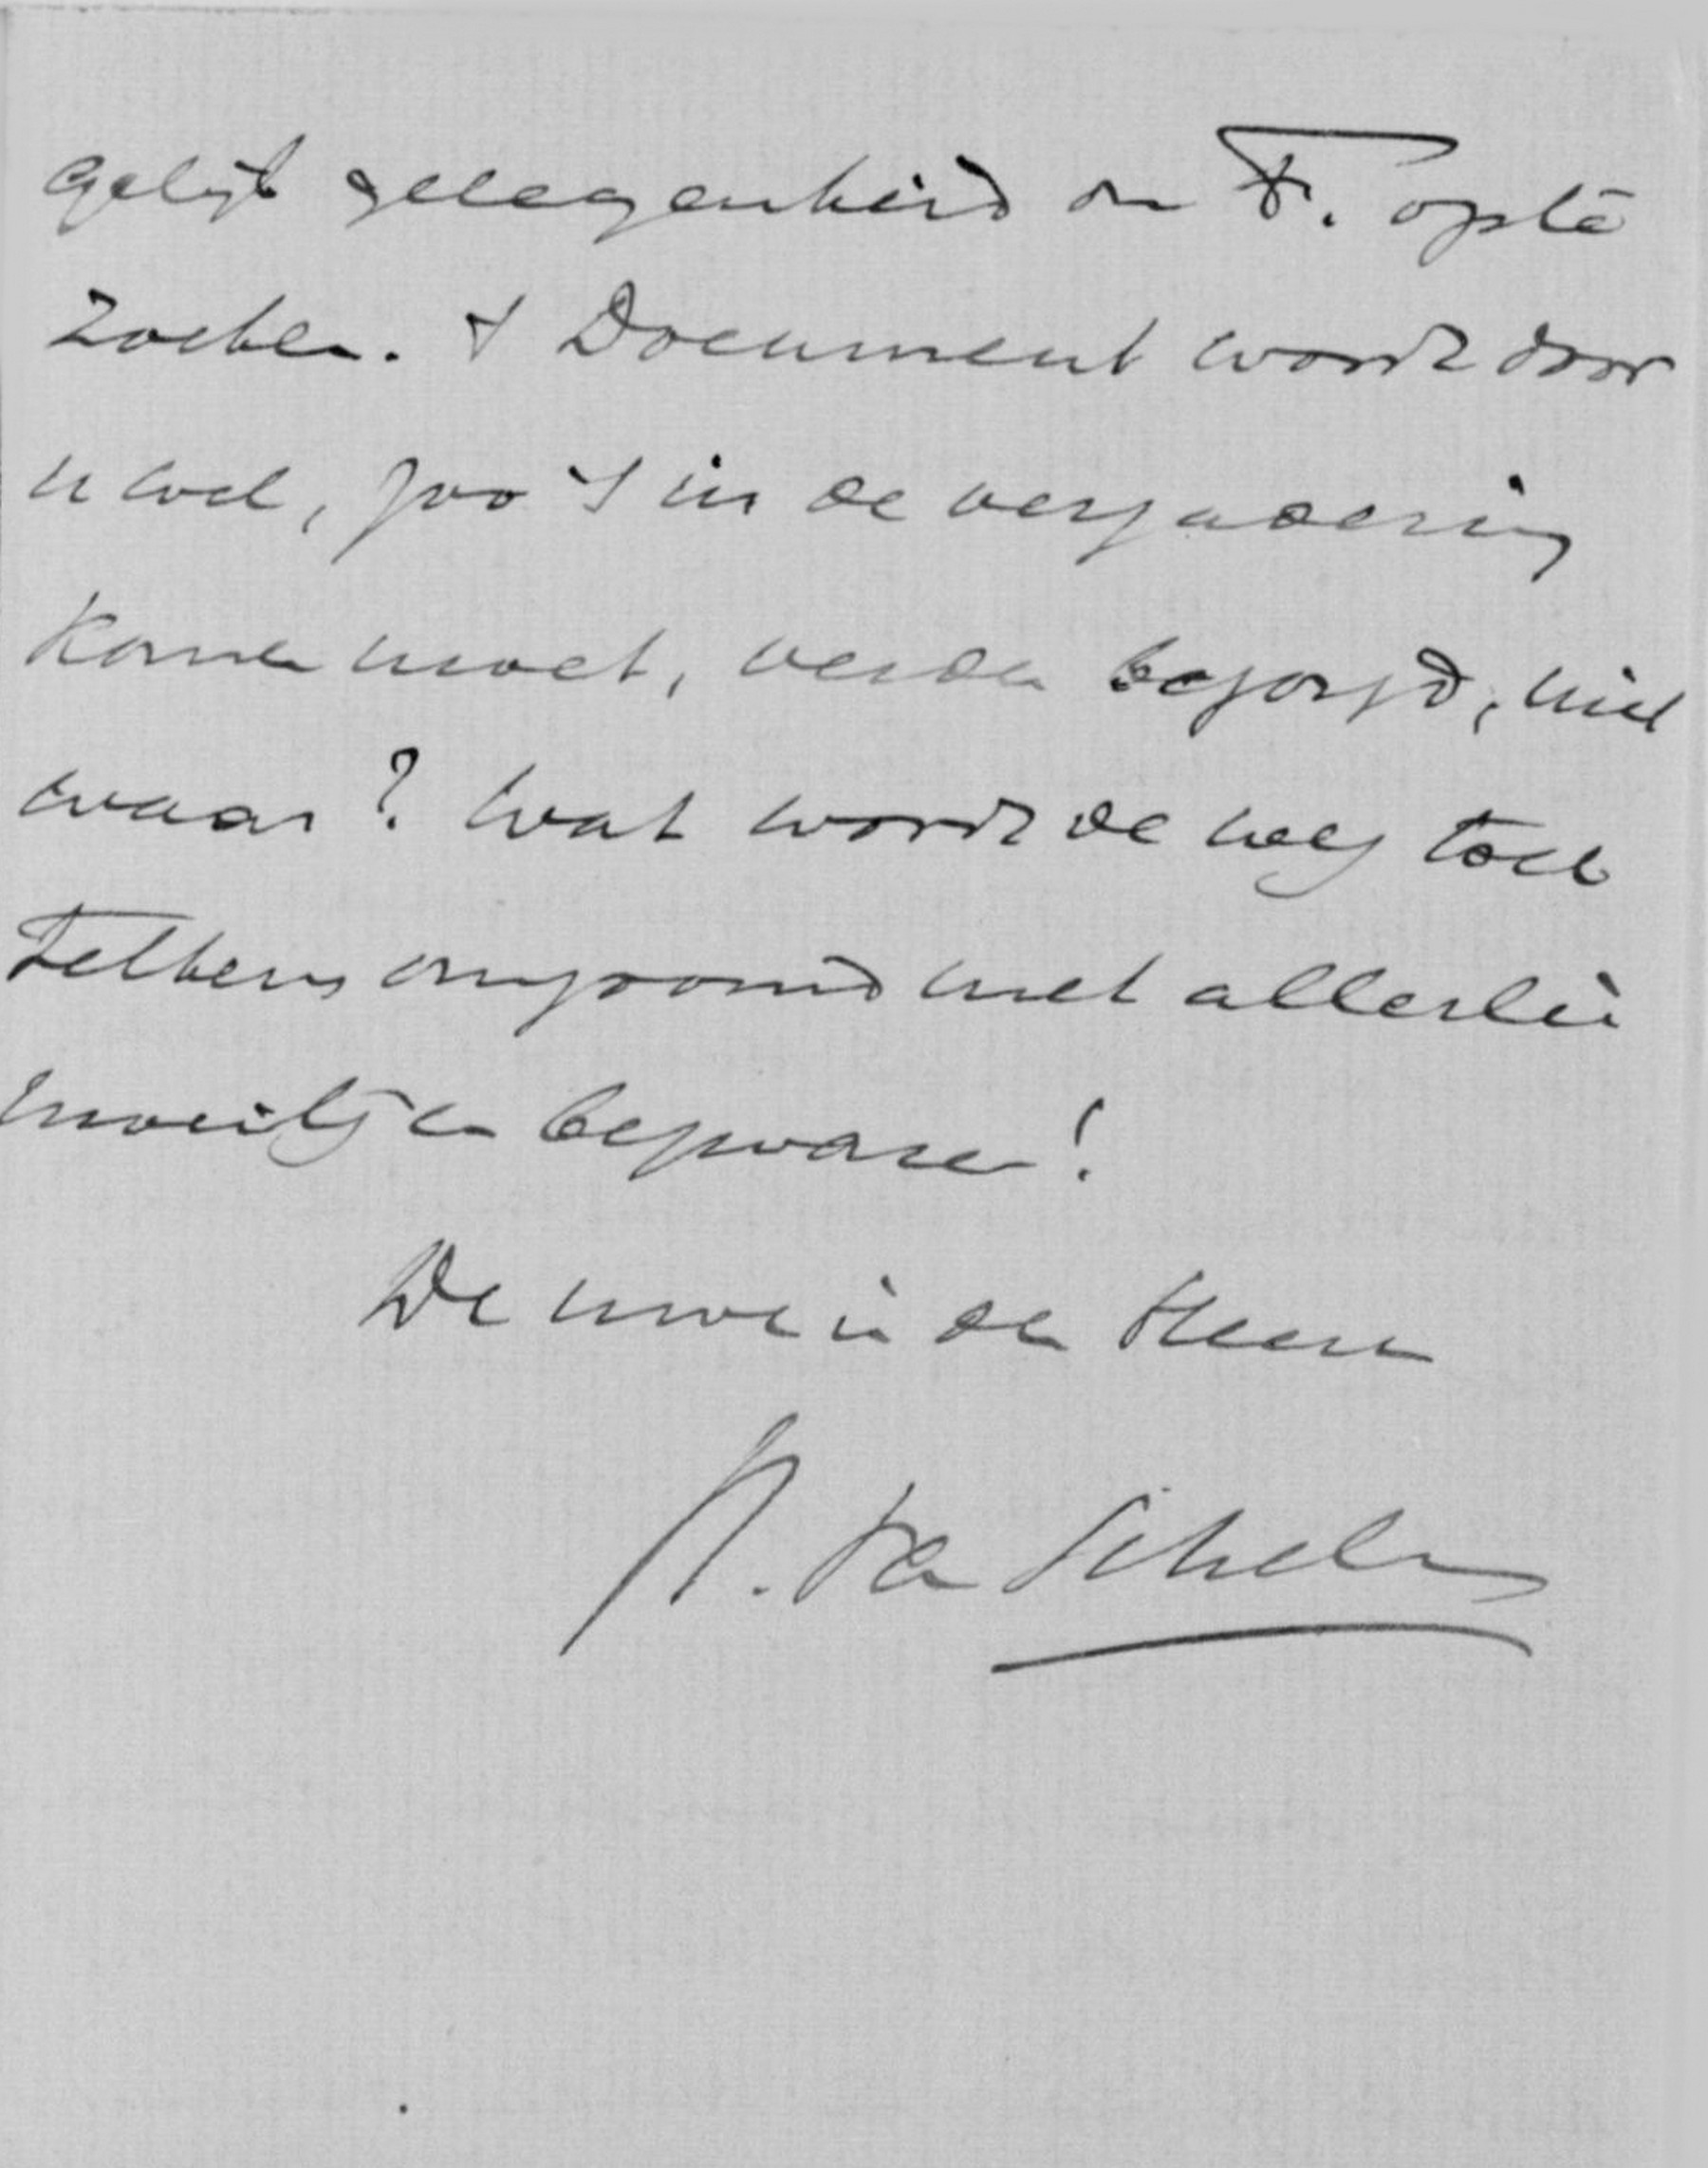 gelijk gelegenheid om F. op te
zoeken. 't Document wordt door
u wel, zoo 't in de vergadering
komen moet, verder bezorgd, niet
waar? Wat wordt de weg toch
telkens omzoomd met allerlei
moeilijke bezwaren!
De uwe in den Heere
P. van Schelven